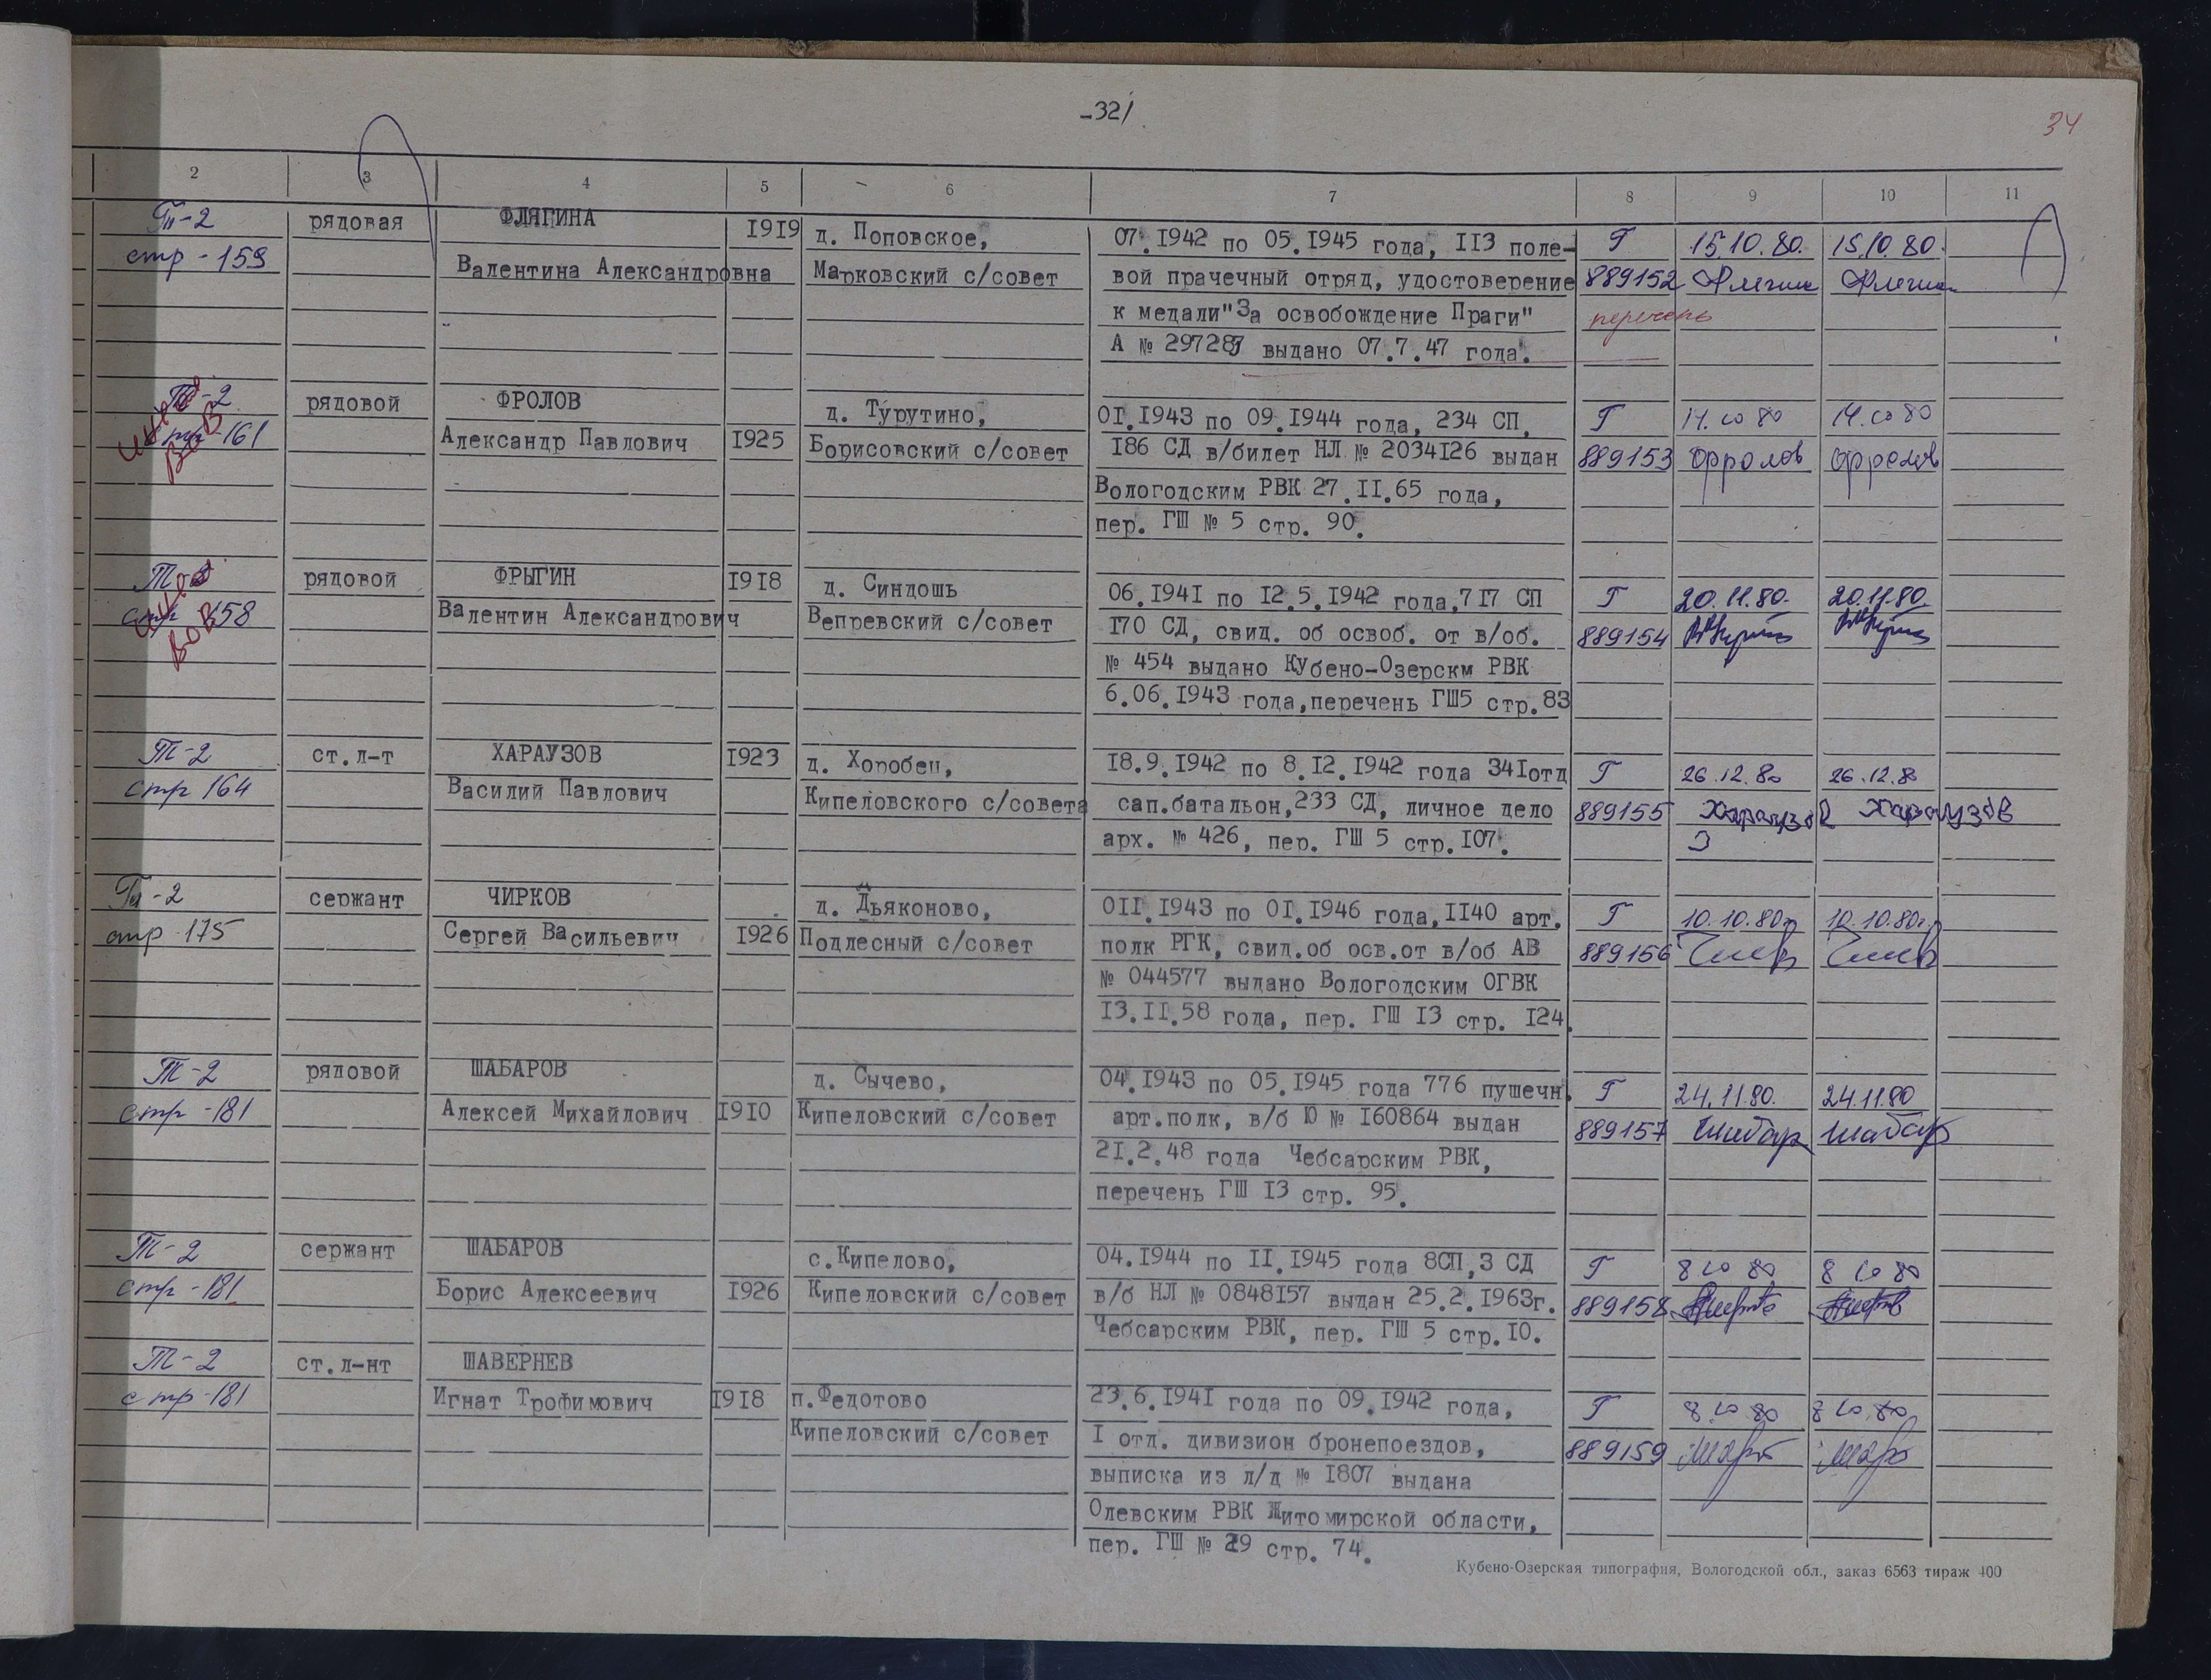 -32/
34
2 3 4 5 6 7 8 9 10 11
Т-2 рядовая ФЛЯГИНА 1919 д. Поповское, 07.1942 по 05.1945 года, II3 поле- Г 15.10.80. 15.10.80.
стр - 159 Валентина Александровна Марковский с/совет вой прачечный отряд, удостоверение 889152
к медали "За освобождение Праги" перечень
А № 297283 выдано 07.7.47 года.
Т-2 рядовой ФРОЛОВ д. Турутино, 01.1943 по 09.1944 года, 234 СП, Г 14.10 80 14.10 80
стр-161 Александр Павлович 1925 Борисовский с/совет 186 СД в/билет НЛ № 2034126 выдан 889153 Фролов Фролов
ВОВ
Вологодским РВК 27.II.65 года,
пер. ГШ № 5 стр. 90.
Т-2 рядовой ФРЫГИН 1918 д. Синдошь 06.1941 по 12.5.1942 года,717 СП Г 20.11.80. 20.11.80.
стр 158 Валентин Александрович Вепревский с/совет 170 СД, свид. об освоб. от в/об. 889154
ВОВ
№ 454 выдано Кубено-Озерскм РВК
6.06.1943 года,перечень ГШ5 стр.83
Т-2 ст.л-т ХАРАУЗОВ 1923 д. Хоробец, 18.9.1942 по 8.12.1942 года 341отд Г 26.12.80 26.12.8
стр 164 Василий Павлович Кипеловского с/совета сап.батальон,233 СД, личное дело 889155 Хараузов Хараузов
арх. № 426, пер. ГШ 5 стр.107. З
Т-2 сержант ЧИРКОВ д. Дьяконово, 0II.1943 по 01.1946 года,II40 арт. Г 10.10.80г 10.10.80г.
стр 175 Сергей Васильевич 1926 Подлесный с/совет полк РГК, свид.об осв.от в/об АВ 889156
№ 044577 выдано Вологодским ОГВК
13.II.58 года, пер. ГШ 13 стр. 124.
Т-2 рядовой ШАБАРОВ д. Сычево, 04.1943 по 05.1945 года 776 пушечн. Г 24.11.80. 24.11.80
стр -181 Алексей Михайлович 1910 Кипеловский с/совет арт.полк, в/б Ю № 160864 выдан 889157 Шабар Шабар
21.2.48 года Чебсарским РВК,
перечень ГШ 13 стр. 95.
Т-2 сержант ШАБАРОВ с.Кипелово, 04.1944 по II.1945 года 8СП,3 СД Г 8 10 80 8 10 80
стр -181 Борис Алексеевич 1926 Кипеловский с/совет в/б НЛ № 0848157 выдан 25.2.1963г. 889158
Чебсарским РВК, пер. ГШ 5 стр.10.
Т-2 ст.л-нт ШАВЕРНЕВ
стр-181 Игнат Трофимович 1918 п.Федотово 23.6.1941 года по 09.1942 года, Г 8.10.80 8 10.80
Кипеловский с/совет I отд. дивизион бронепоездов, 889159
выписка из л/д № 1807 выдана
Олевским РВК Житомирской области,
пер. ГШ № 29 стр. 74.
Кубено-Озерская типография, Вологодской обл., заказ 6563 тираж 400